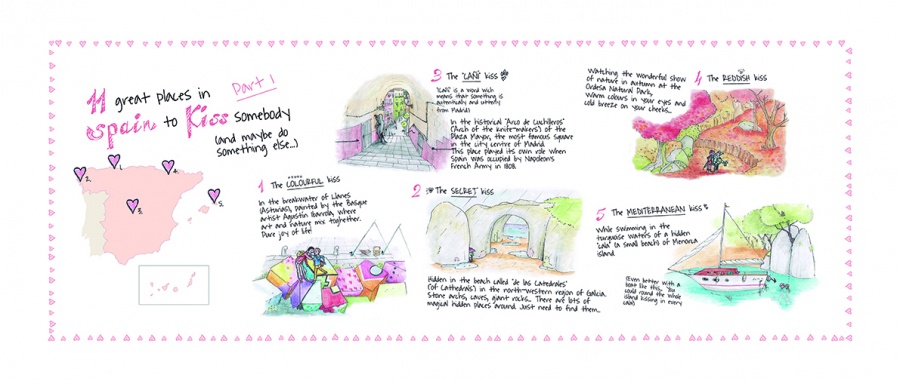 11 great places in
Spain to Kiss somebody
Part 1
(and maybe do
something else...)
1.
2.
3.
4.
5.
1 The COLOURFUL kiss
In the breakwater of Llanes
(Asturias), painted by the Basque
artist Agustin Ibarrola, where
art and nature mix toghether.
Pure joy of life!
2 The SECRET kiss
Hidden in the beach called 'de las Catedrales'
('of Cathedrals') in the north-western region of Galicia.
Stone archs, caves, giant rocks... There are lots of
magical hidden places around. Just need to find them...
3 The 'CAÑÍ' kiss
('Cañí' is a word wich
means that something is
authentically and utterly
from Madrid)
In the historical 'Arco de Cuchilleros'
('Arch of the knife-makers') of the
Plaza Mayor, the most famous square
in the city centre of Madrid.
This place played its own role when
Spain was occupied by Napoleon's
French Army in 1808.
4 The REDDISH kiss
Watching the wonderful show
of nature in autumn at the
Ordesa Natural Park,
Warm colours in your eyes and
cold breeze on your cheeks...
5 The MEDITERRANEAN kiss
While swimming in the
turquoise waters of a hidden
'Cala' (a small beach) of Menorca
island.
(Even better with a
boat like this... You
could round the whole
island kissing in every
cala!)